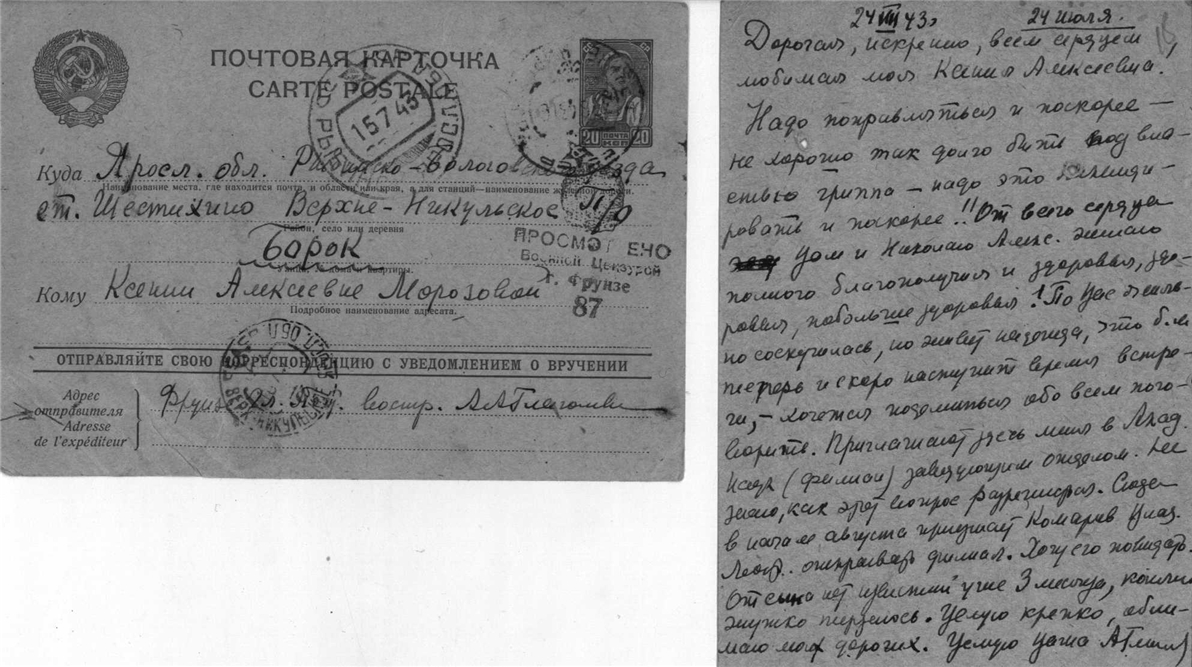 ПОЧТОВАЯ КАРТОЧКА
CARTE POSTALE
15 7 43
20 ПОЧТА 20
КОП
Куда Яросл. обл. Рыбинско-Вологовского уезда
Наименование места, где находится почта, и области или края, а для станций—наименование железной дороги.
ст. Шестихино Верхне-Никульское п/о
Район, село или деревня
Борок
Кому Ксении Алексеевне Морозовой
Подробное наименование адресата.
ПРОСМОТРЕНО
Военной Цензурой
г. Фрунзе
87
ОТПРАВЛЯЙТЕ СВОЮ КОРРЕСПОНДЕНЦИЮ С УВЕДОМЛЕНИЕМ О ВРУЧЕНИИ
Адрес
отправителя
Adresse
de l'expéditeur
Фрунзе востр.
24 43 24 июля.
Дорогая, искренно, всем сердцем
любимая моя Ксения Алексеевна!
Надо поправляться и поскорее —
не хорошо так долго быть под вла-
стью гриппа — надо это
ровать и поскорее!! От всего сердца
Вам и Николаю Алекс. желаю
полного благополучия и здоровья, здо-
ровья, побольше здоровья! По Вас
по соскучилась, но живет надежда, что
теперь и скоро наступит время встре-
чи, — хочется поделиться обо всем пого-
ворить. Приглашают здесь меня в Акад.
Наук (филиал) заведующим отделом. Не
знаю, как этот вопрос разрешится. Сюда
в начале августа приезжает Комаров Влад.
Леонт. открывать филиал. Хочу его повидать.
От сына нет известий уже 3 месяца,
жутко Целую крепко, обни-
маю моих дорогих. Целую Ваша